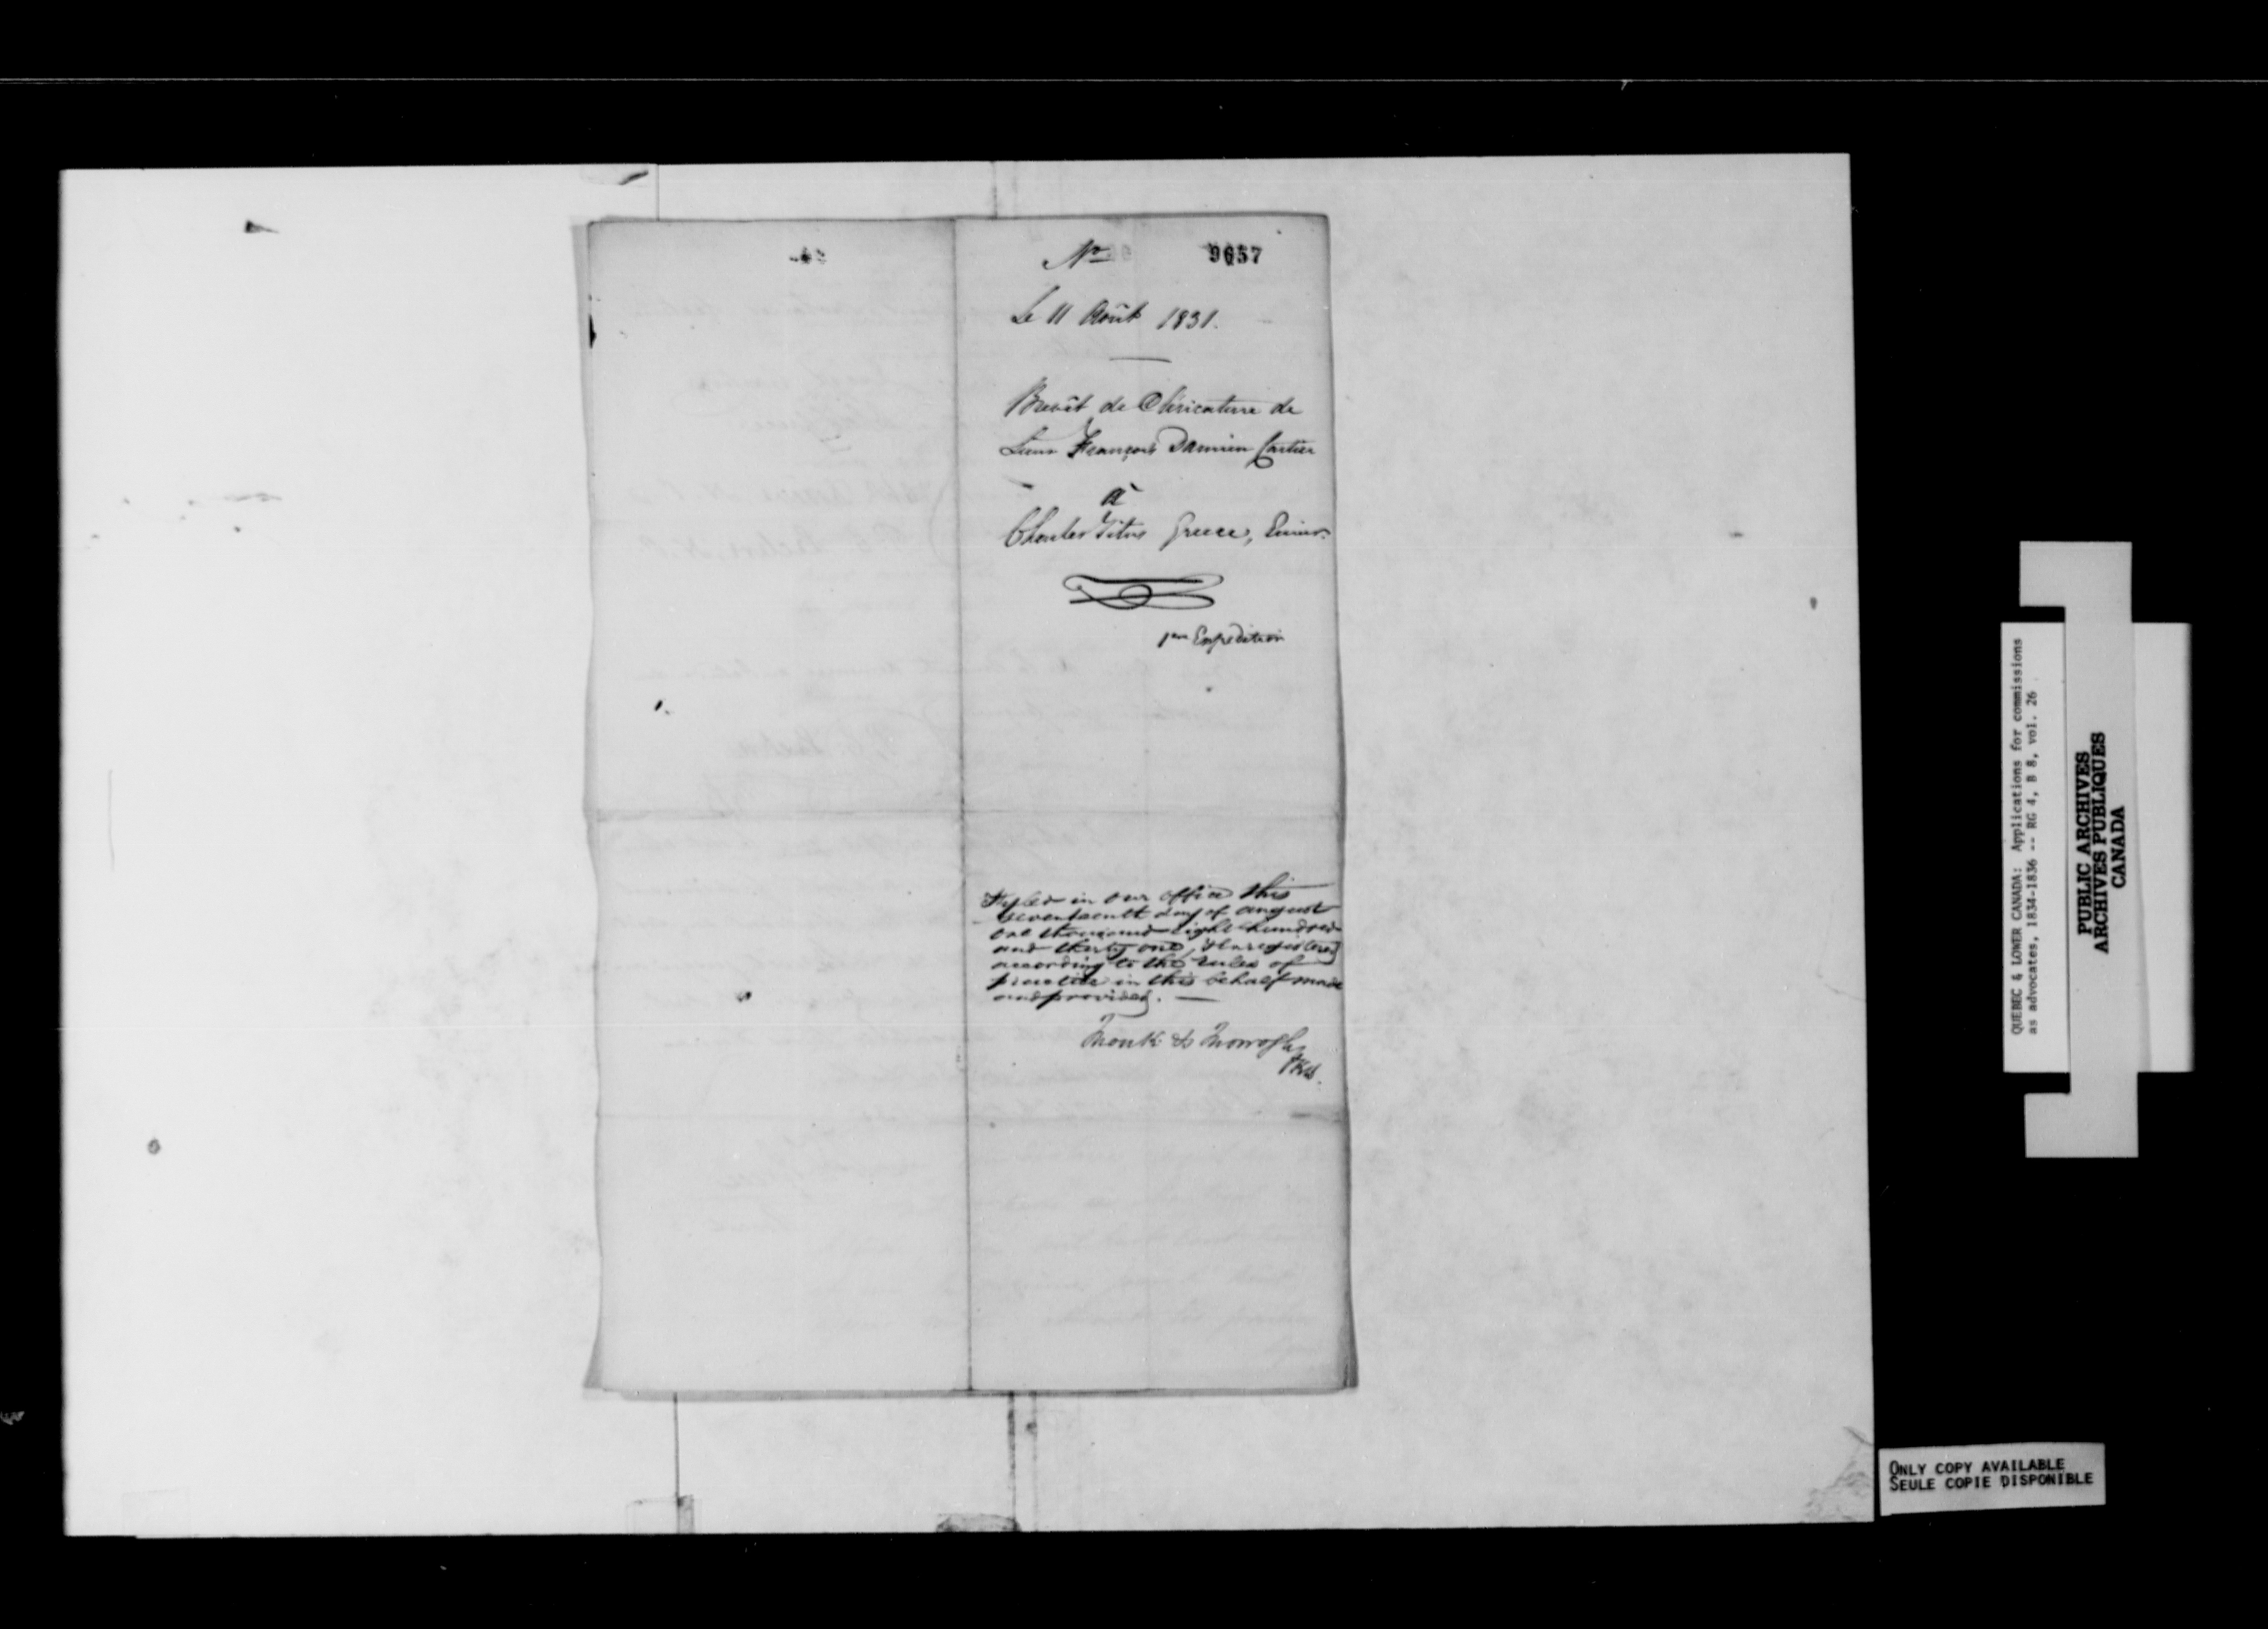 No 9657
Le 11 Août 1831.
Brevêt de Cléricature de
Sieur François Damien Cartier
à
Charles Titus Greece, Ecuier.
1ère Expédition
Fyled in our office this
seventeenth day of august
one thousand eight hundred
and thirty one, & enregistered
according to the rules of
practice in this behalf made
and provided. —
Monk & Morrogh
PKB.
QUEBEC & LOWER CANADA: Applications for commissions
as advocates, 1834-1836 -- RG 4, B 8, vol. 26
PUBLIC ARCHIVES
ARCHIVES PUBLIQUES
CANADA
ONLY COPY AVAILABLE
SEULE COPIE DISPONIBLE